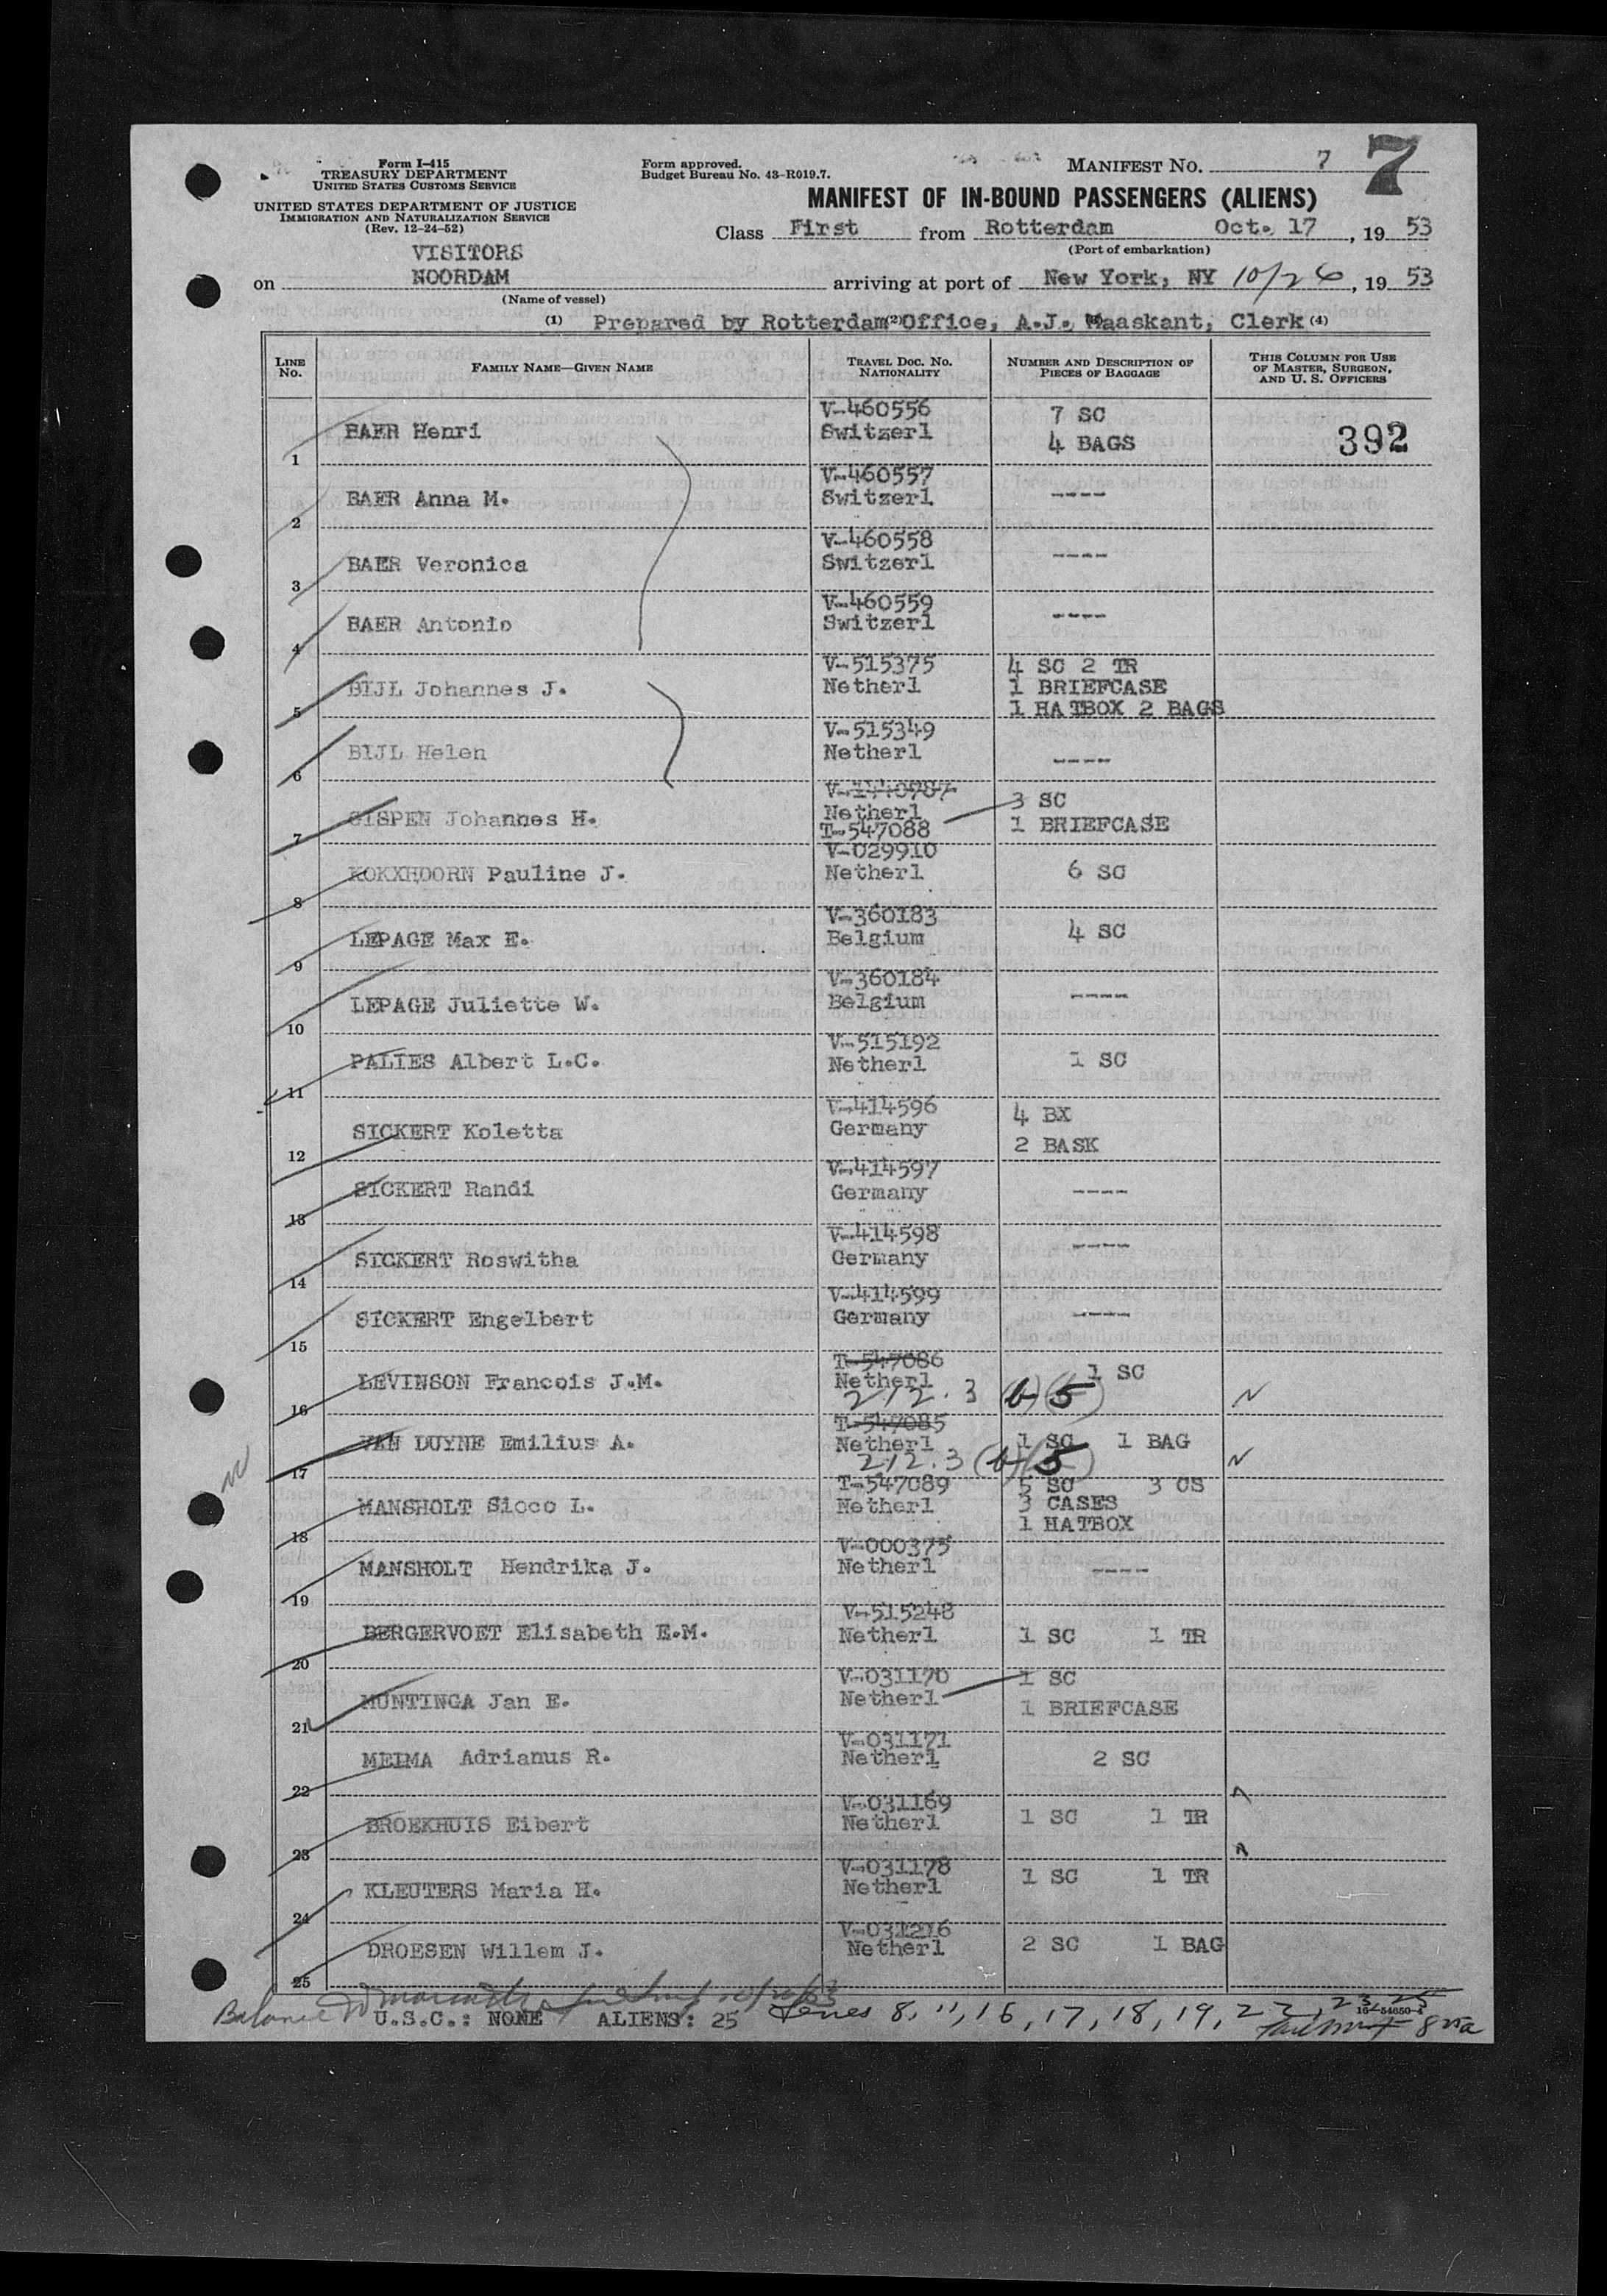 Form I-415
TREASURY DEPARTMENT
UNITED STATES CUSTOMS SERVICE
UNITED STATES DEPARTMENT OF JUSTICE
IMMIGRATION AND NATURALIZATION SERVICE
(Rev. 12-24-52)
Form approved.
Budget Bureau No. 43-R019.7.
MANIFEST No. 7
7
MANIFEST OF IN-BOUND PASSENGERS (ALIENS)
Class First from Rotterdam Oct. 17, 1953
(Port of embarkation)
VISITORS
on NOORDAM arriving at port of New York, NY 10/26, 1953
(Name of vessel)
(1) Prepared by Rotterdam (2) Office, A.J. Maaskant, Clerk (4)
LINE No. FAMILY NAME—GIVEN NAME TRAVEL DOC. No. NATIONALITY NUMBER AND DESCRIPTION OF PIECES OF BAGGAGE THIS COLUMN FOR USE OF MASTER, SURGEON, AND U. S. OFFICERS
1 BAER Henri V-460556 Switzerl 7 SC 4 BAGS 392
2 BAER Anna M. V-460557 Switzerl ----
3 BAER Veronica V-460558 Switzerl ----
4 BAER Antonio V-460559 Switzerl ----
5 BIJL Johannes J. V-515375 Netherl 4 SC 2 TR 1 BRIEFCASE 1 HATBOX 2 BAGS
6 BIJL Helen V-515349 Netherl ----
7 GISPEN Johannes H. V-1440787 Netherl T-547088 3 SC 1 BRIEFCASE
8 KOKXHDORN Pauline J. V-029910 Netherl 6 SC
9 LEPAGE Max E. V-360183 Belgium 4 SC
10 LEPAGE Juliette W. V-360184 Belgium ----
11 PALIES Albert L.C. V-515192 Netherl 1 SC
12 SICKERT Koletta V-414596 Germany 4 BX 2 BASK
13 SICKERT Randi V-414597 Germany ----
14 SICKERT Roswitha V-414598 Germany ----
15 SICKERT Engelbert V-414599 Germany ----
16 LEVINSON Francois J.M. T-547086 Netherl 1 SC 212.3 (b)(5)
17 VAN DUYNE Emilius A. T-547085 Netherl 1 SC 1 BAG 212.3 (b)(5)
18 MANSHOLT Sicco L. T-547089 Netherl 5 SC 3 CS 3 CASES 1 HATBOX
19 MANSHOLT Hendrika J. V-000375 Netherl ----
20 BERGERVOET Elisabeth E.M. V-515248 Netherl 1 SC 1 TR
21 MUNTINGA Jan E. V-031170 Netherl 1 SC 1 BRIEFCASE
22 MEIMA Adrianus R. V-031171 Netherl 2 SC
23 BROEKHUIS Eibert V-031169 Netherl 1 SC 1 TR
24 KLEUTERS Maria H. V-031178 Netherl 1 SC 1 TR
25 DROESEN Willem J. V-031216 Netherl 2 SC 1 BAG
Balance
U.S.C.: NONE ALIENS: 25 Lines 8, 11, 16, 17, 18, 19, 22, 23, 25
16-54650-1